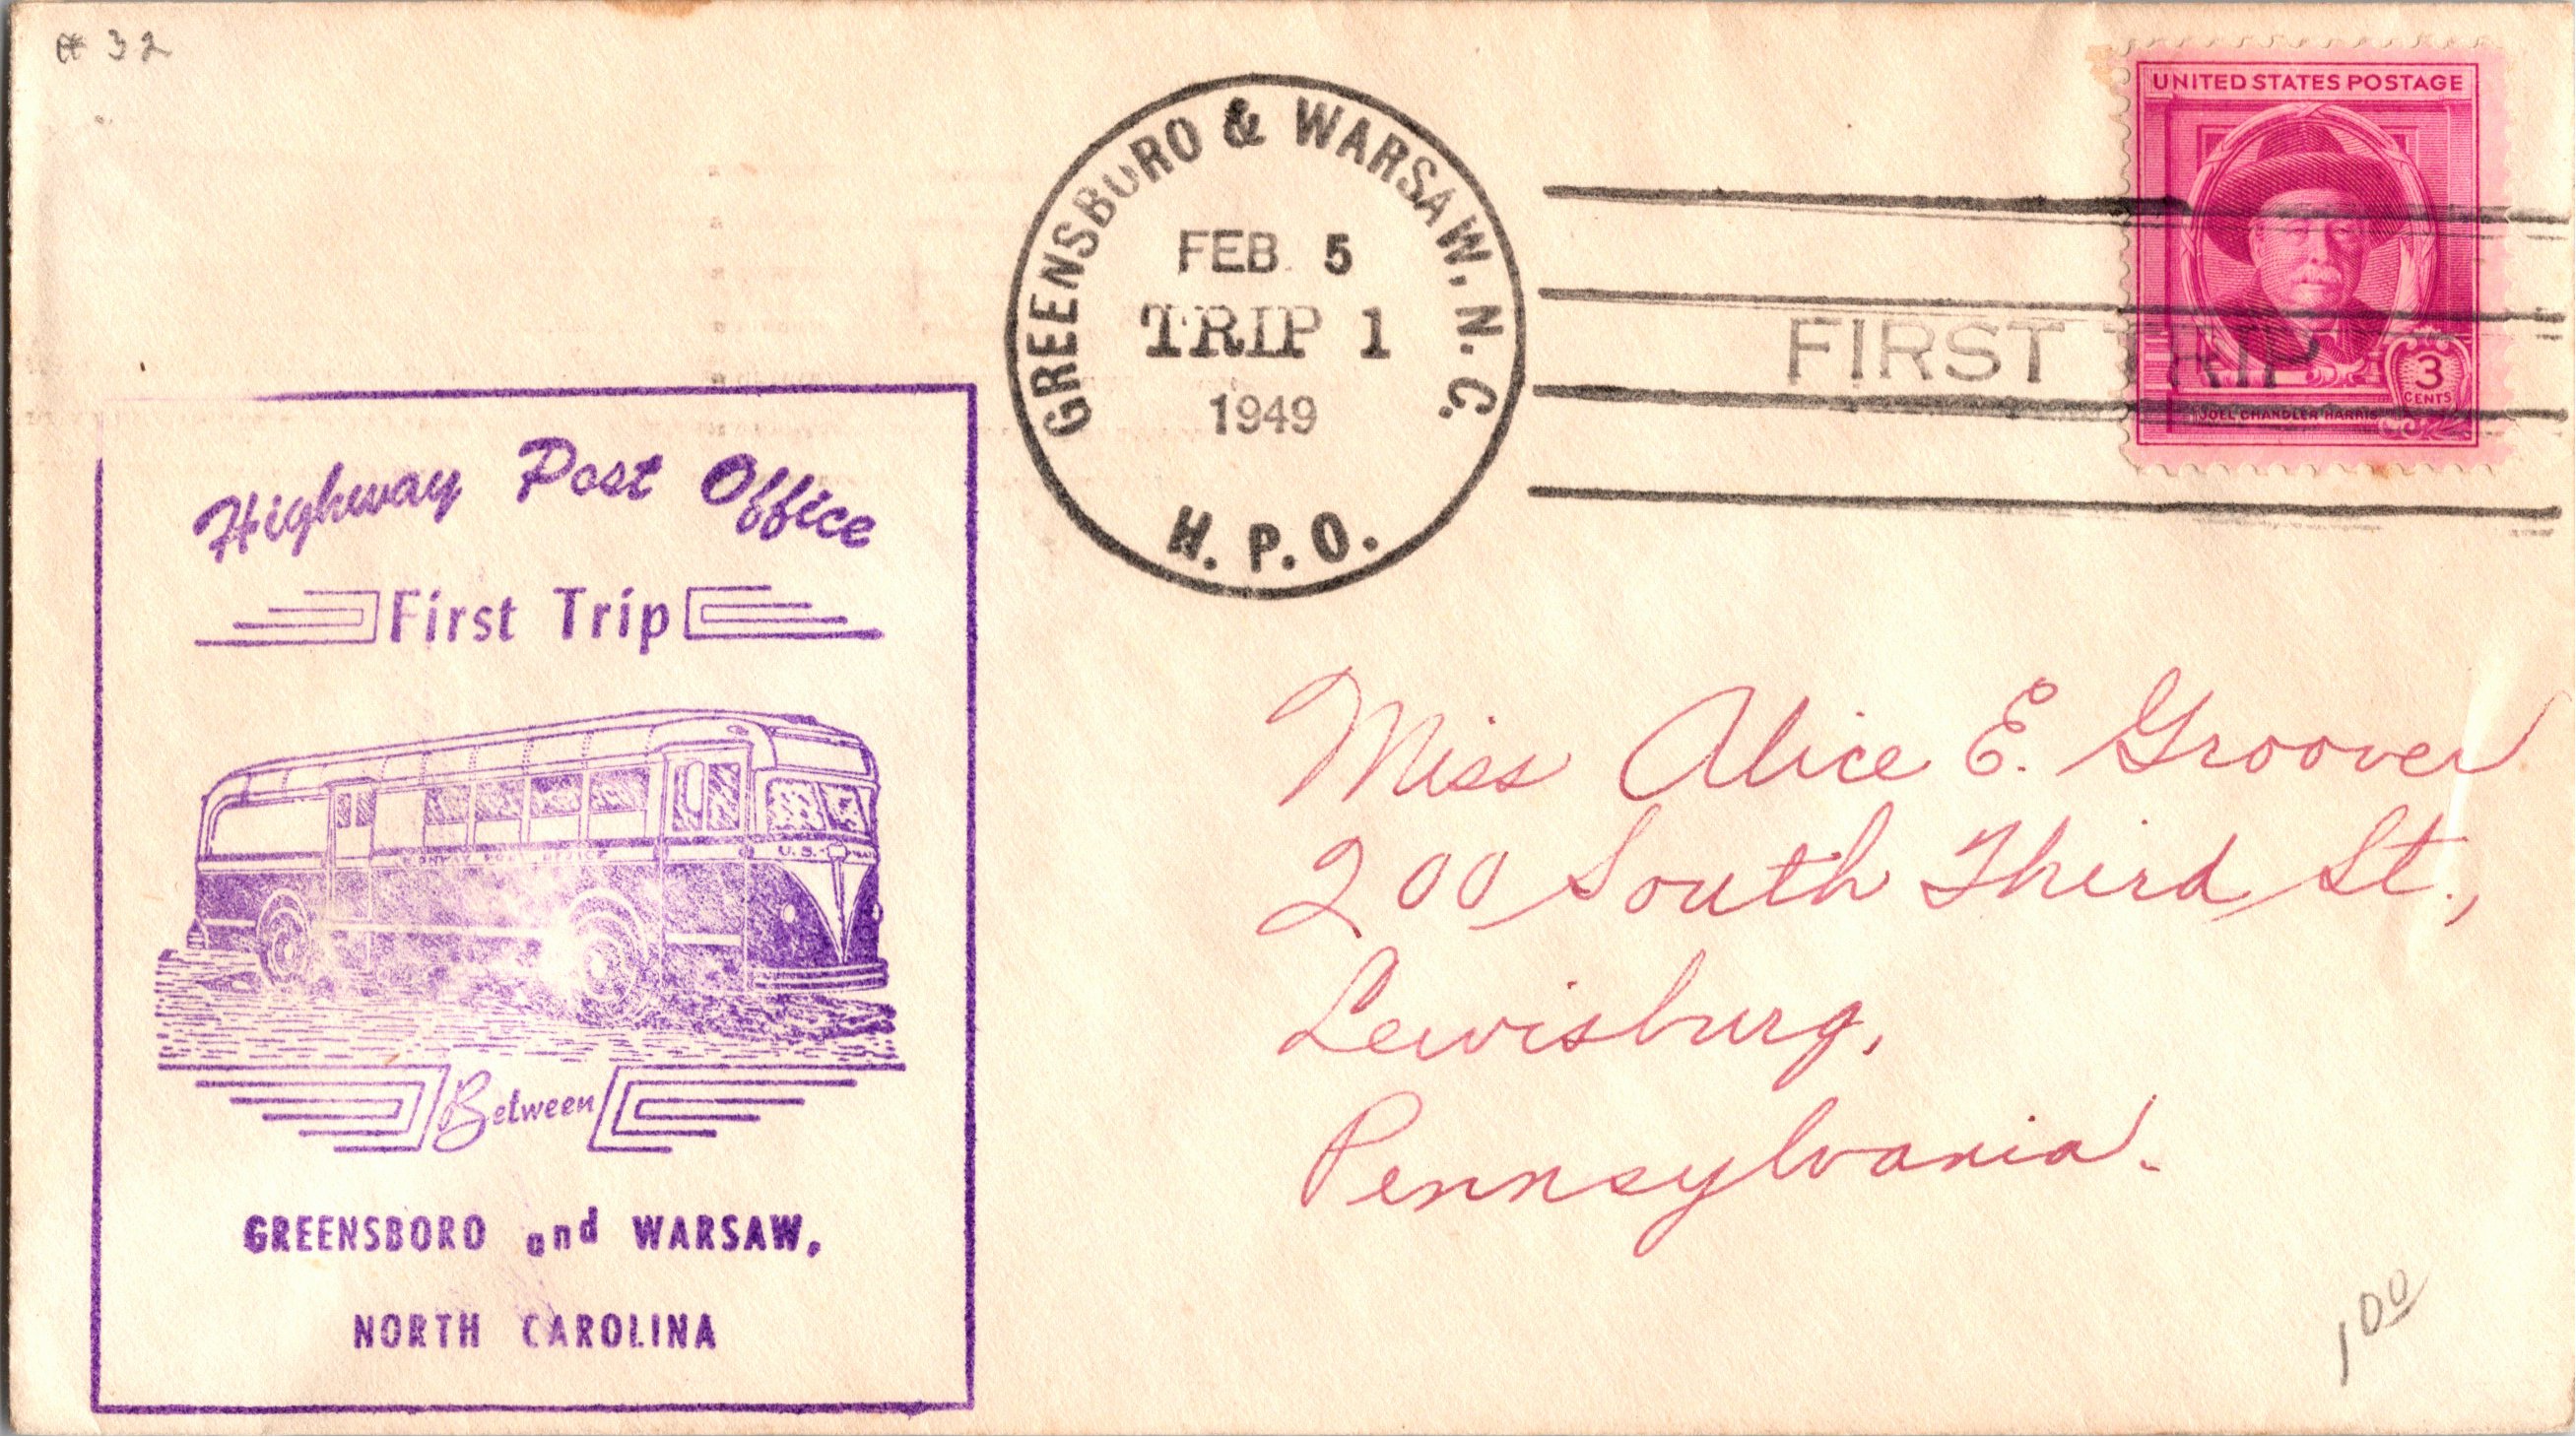 # 32
UNITED STATES POSTAGE
JOEL CHANDLER HARRIS
3
CENTS
GREENSBORO & WARSAW, N. C.
FEB. 5
TRIP 1
1949
H. P. O.
FIRST TRIP
Highway Post Office
First Trip
HIGHWAY POST OFFICE
U.S.
Between
GREENSBORO and WARSAW,
NORTH CAROLINA
Miss Alice E. Groover
200 South Third St.,
Lewisburg,
Pennsylvania.
1 00